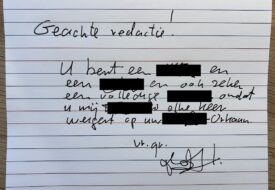 Geachte redactie!
U bent een en
een en ook zeker
een volledige omdat
u mij elke keer
weigert op uw
vr. gr.